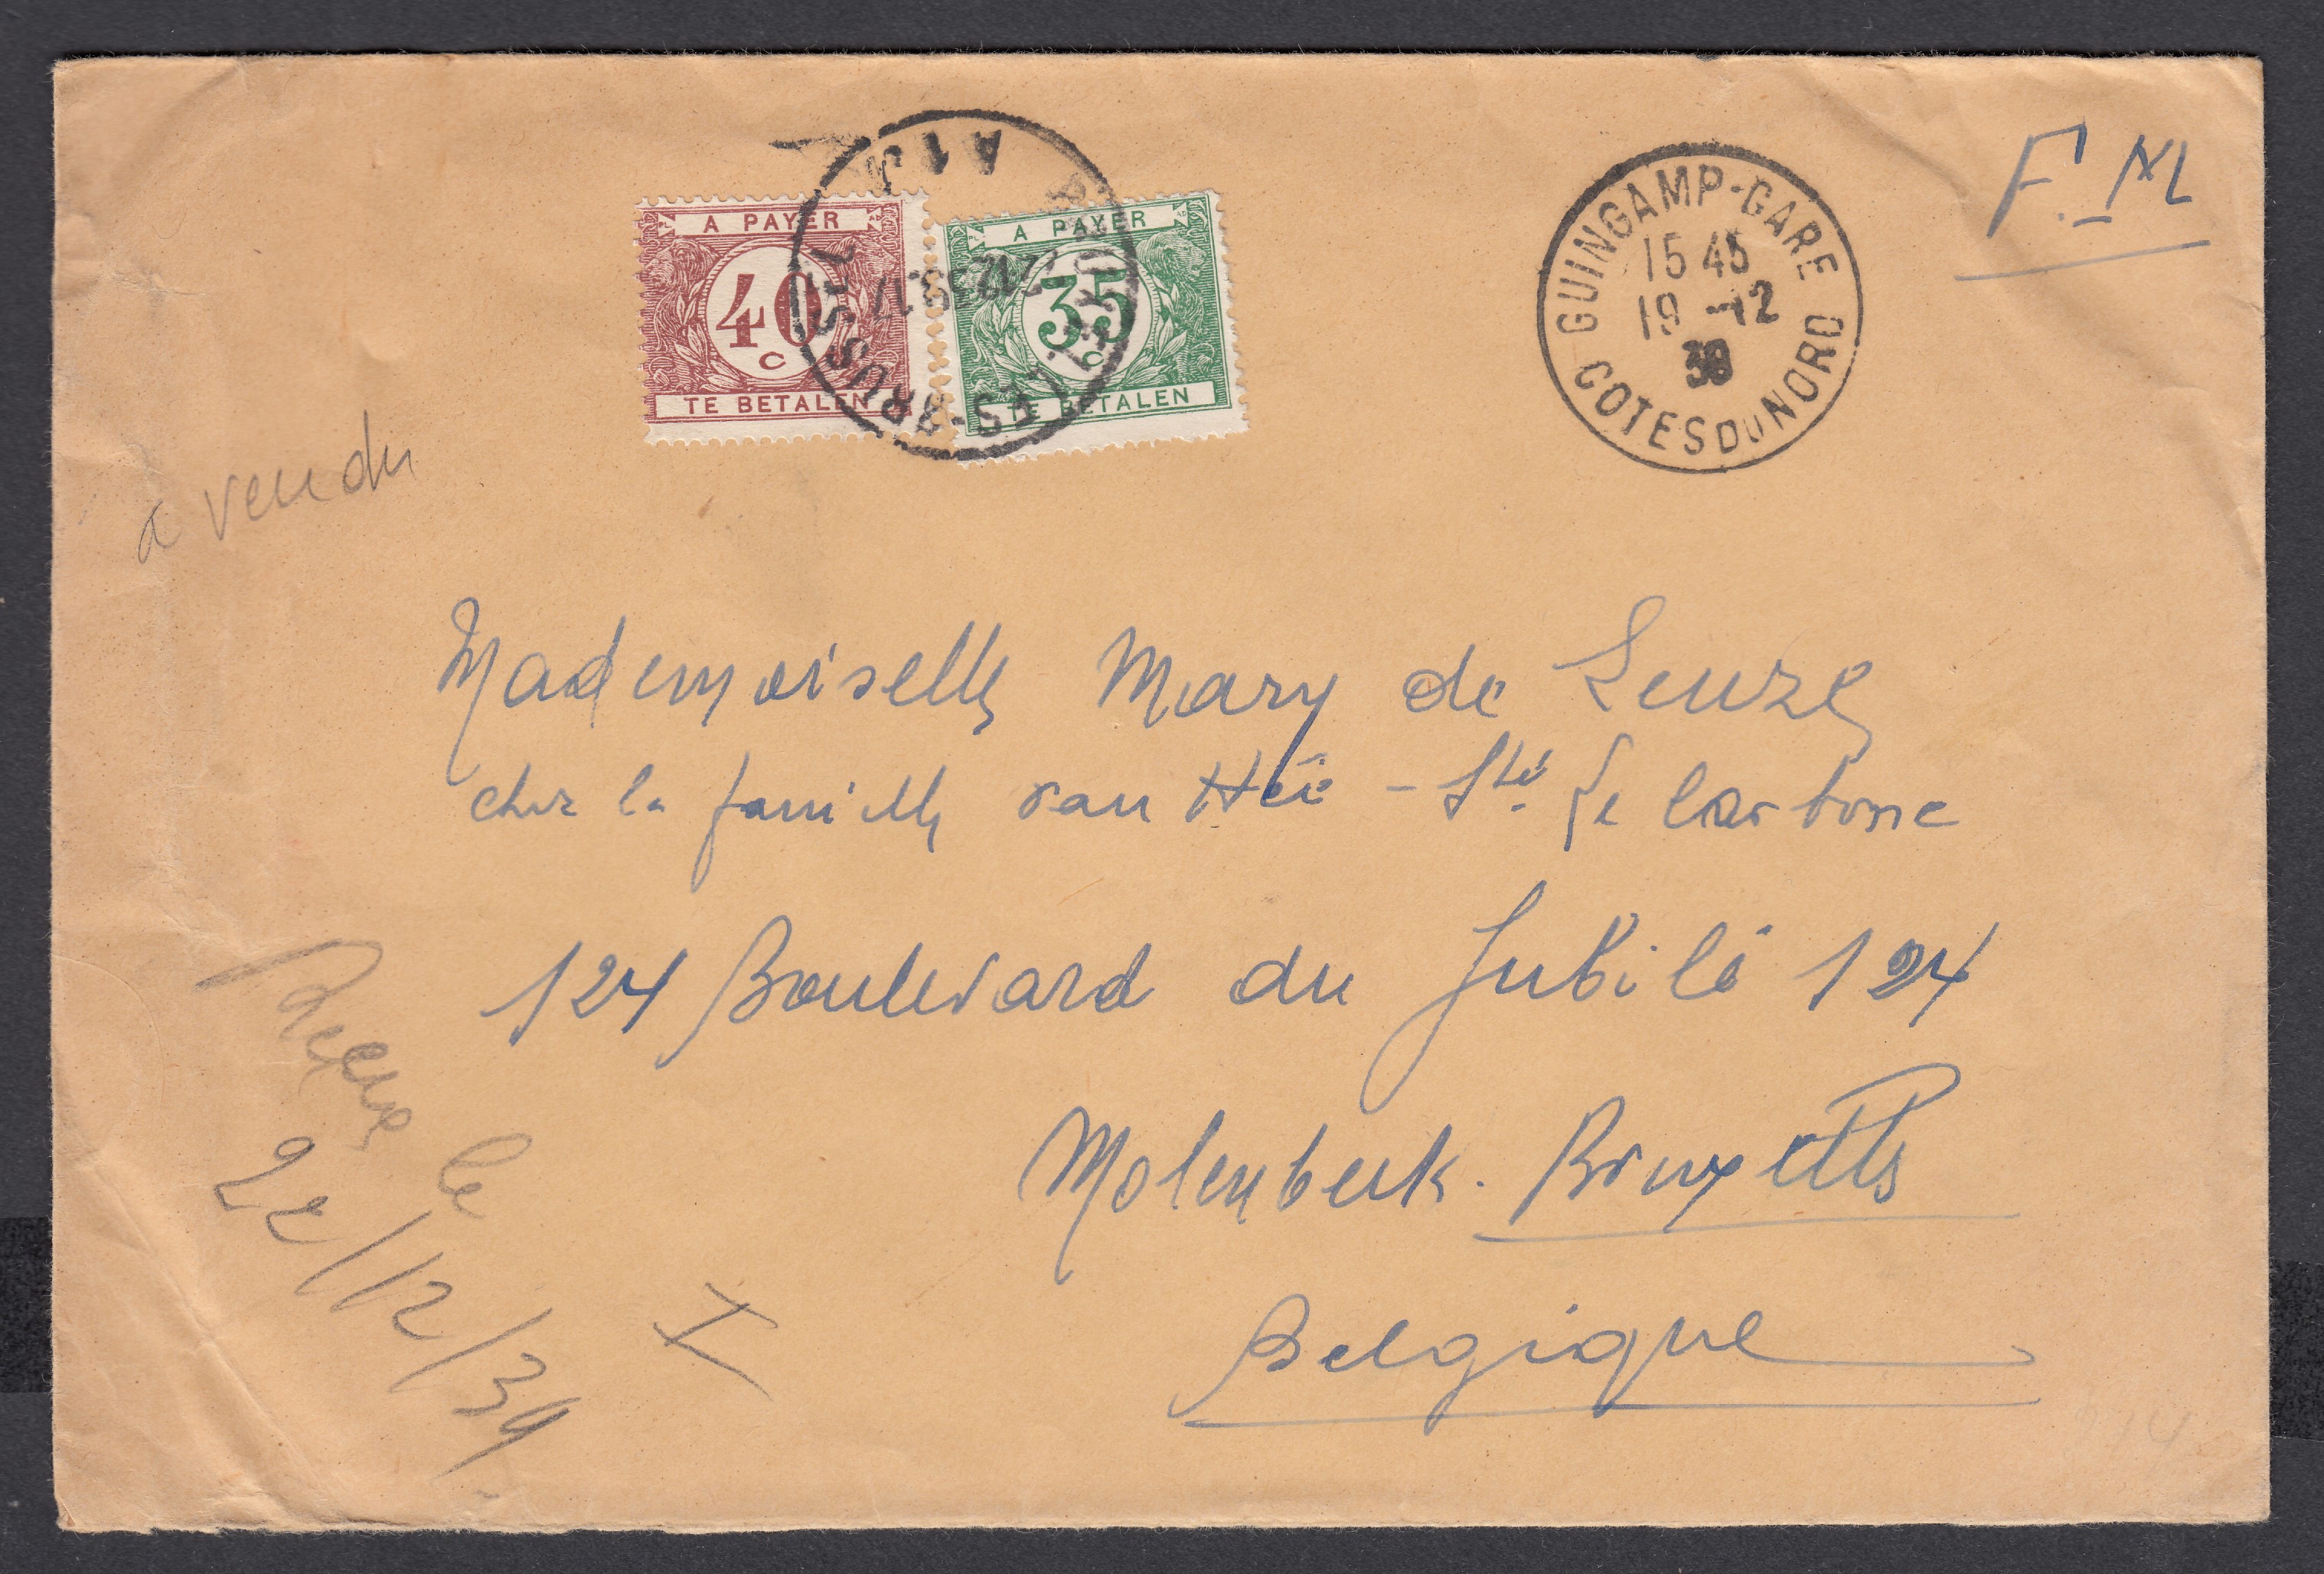 F.M
GUINGAMP-GARE
15 45
19 -12
39
COTES DU NORD
A PAYER
40
C
TE BETALEN
A PAYER
35
C
TE BETALEN
A 1
a vendu
Mademoiselle Mary de Leuze
chez la famille van Hée - Sté Le Carbone
124 Boulevard du Jubilé 124
Molenbeek. Bruxelles
Belgique
Reçue le
22/12/39